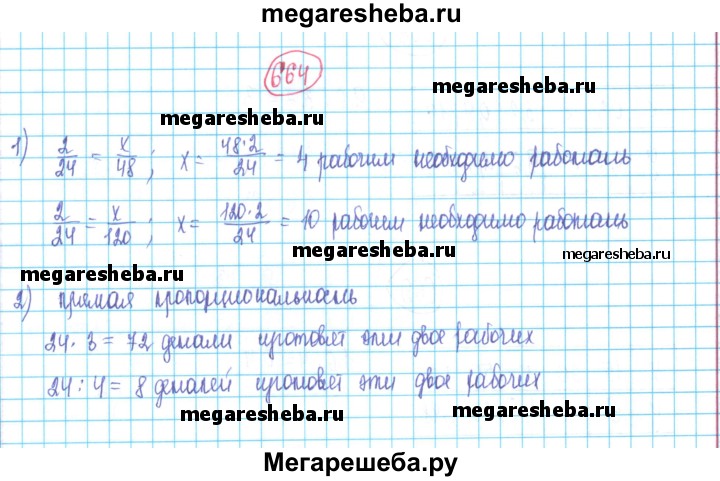 megaresheba.ru
664
megaresheba.ru
megaresheba.ru
1) 2/24 = x/48; x = 48·2/24 = 4 рабочим необходимо работать
2/24 = x/120; x = 120·2/24 = 10 рабочем необходимо работать
megaresheba.ru
megaresheba.ru
megaresheba.ru
2) прямая пропорциональность
24·3 = 72 детали изготовят эти двое рабочих
24:4 = 8 деталей изготовят эти двое рабочих
megaresheba.ru
megaresheba.ru
Мегарешеба.ру